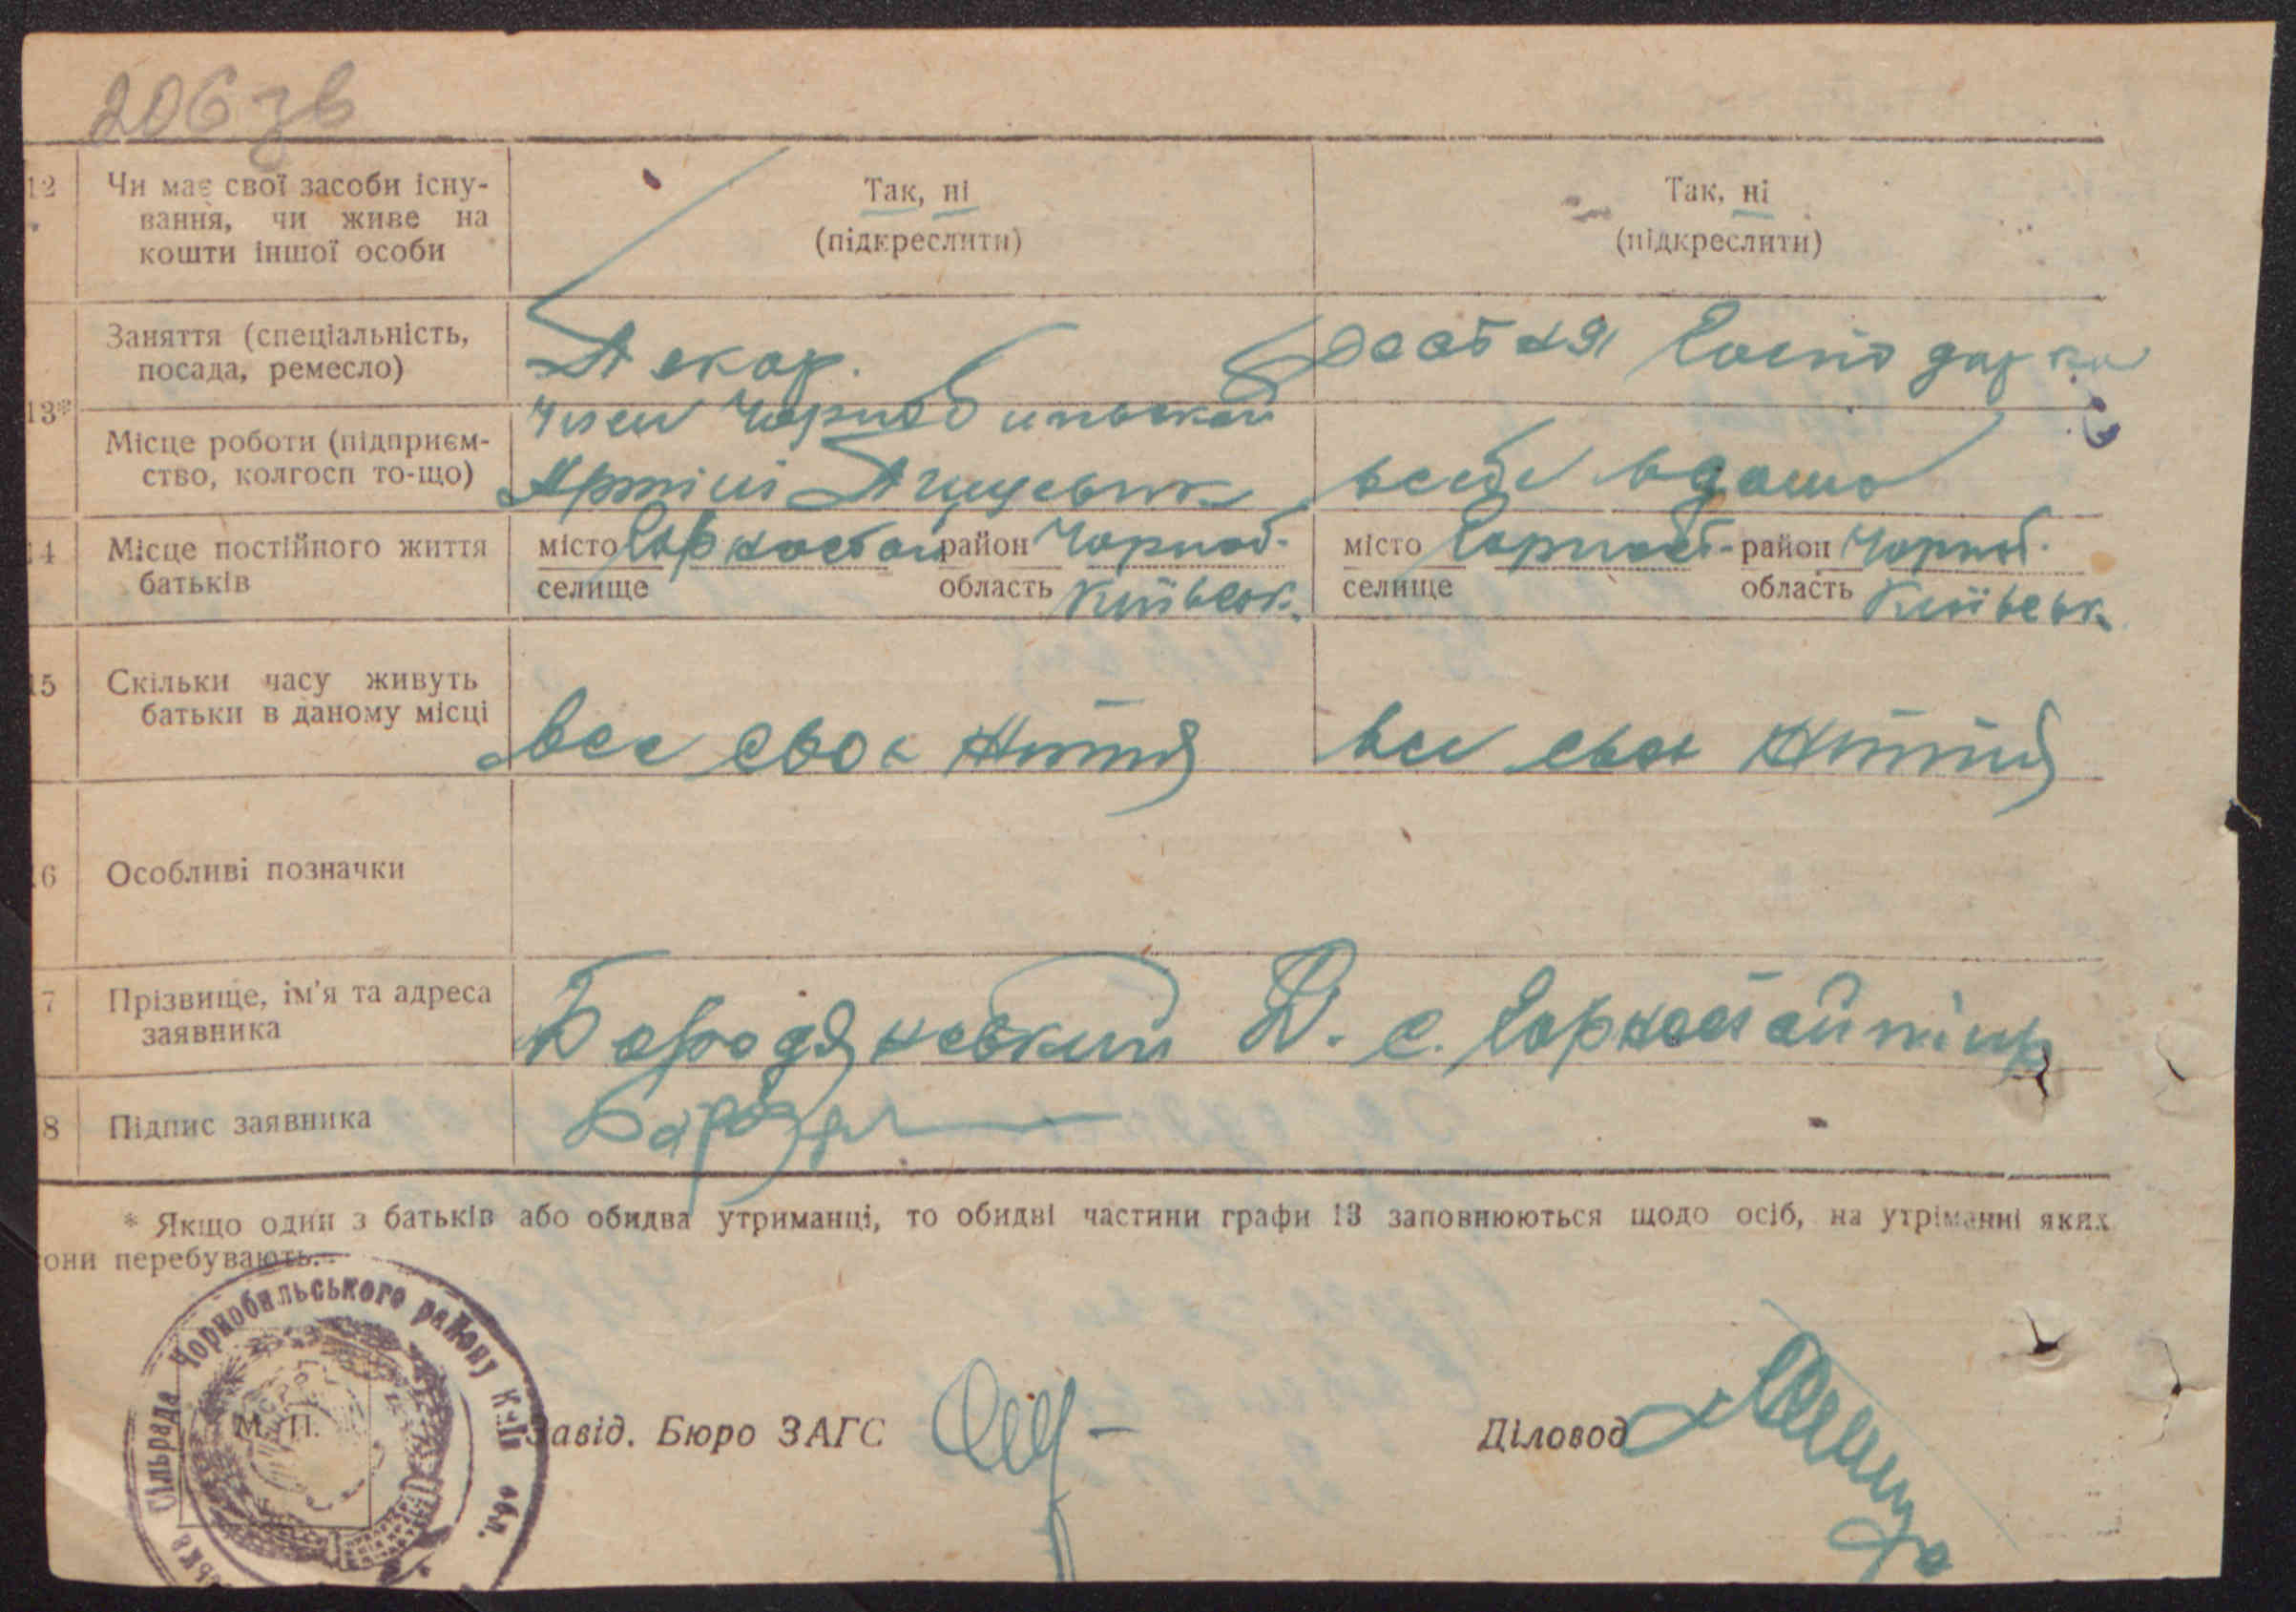 206 зв
12 Чи має свої засоби існу-
вання, чи живе на
кошти іншої особи
Так, ні
(підкреслити)
Так, ні
(підкреслити)
13*
Заняття (спеціальність,
посада, ремесло)
Пекар.
Господарка
Місце роботи (підприєм-
ство, колгосп то-що)
Член Чорнобильской
Артілі
вдома
14 Місце постійного життя
батьків
місто Горностай район Чорноб.
селище область Київськ.
місто Горност- район Чорноб.
селище область Київськ.
15 Скільки часу живуть
батьки в даному місці
все своє життя
все своє життя
16 Особливі позначки
7 Прізвище, ім'я та адреса
заявника
Бородянський Д. с. Горностайпіль
8 Підпис заявника
* Якщо один з батьків або обидва утриманці, то обидві частини графи 13 заповнюються щодо осіб, на утріманні яких
они перебувають.
Сільрада Чорнобильського району К-їв обл.
М. П.
Завід. Бюро ЗАГС
Діловод